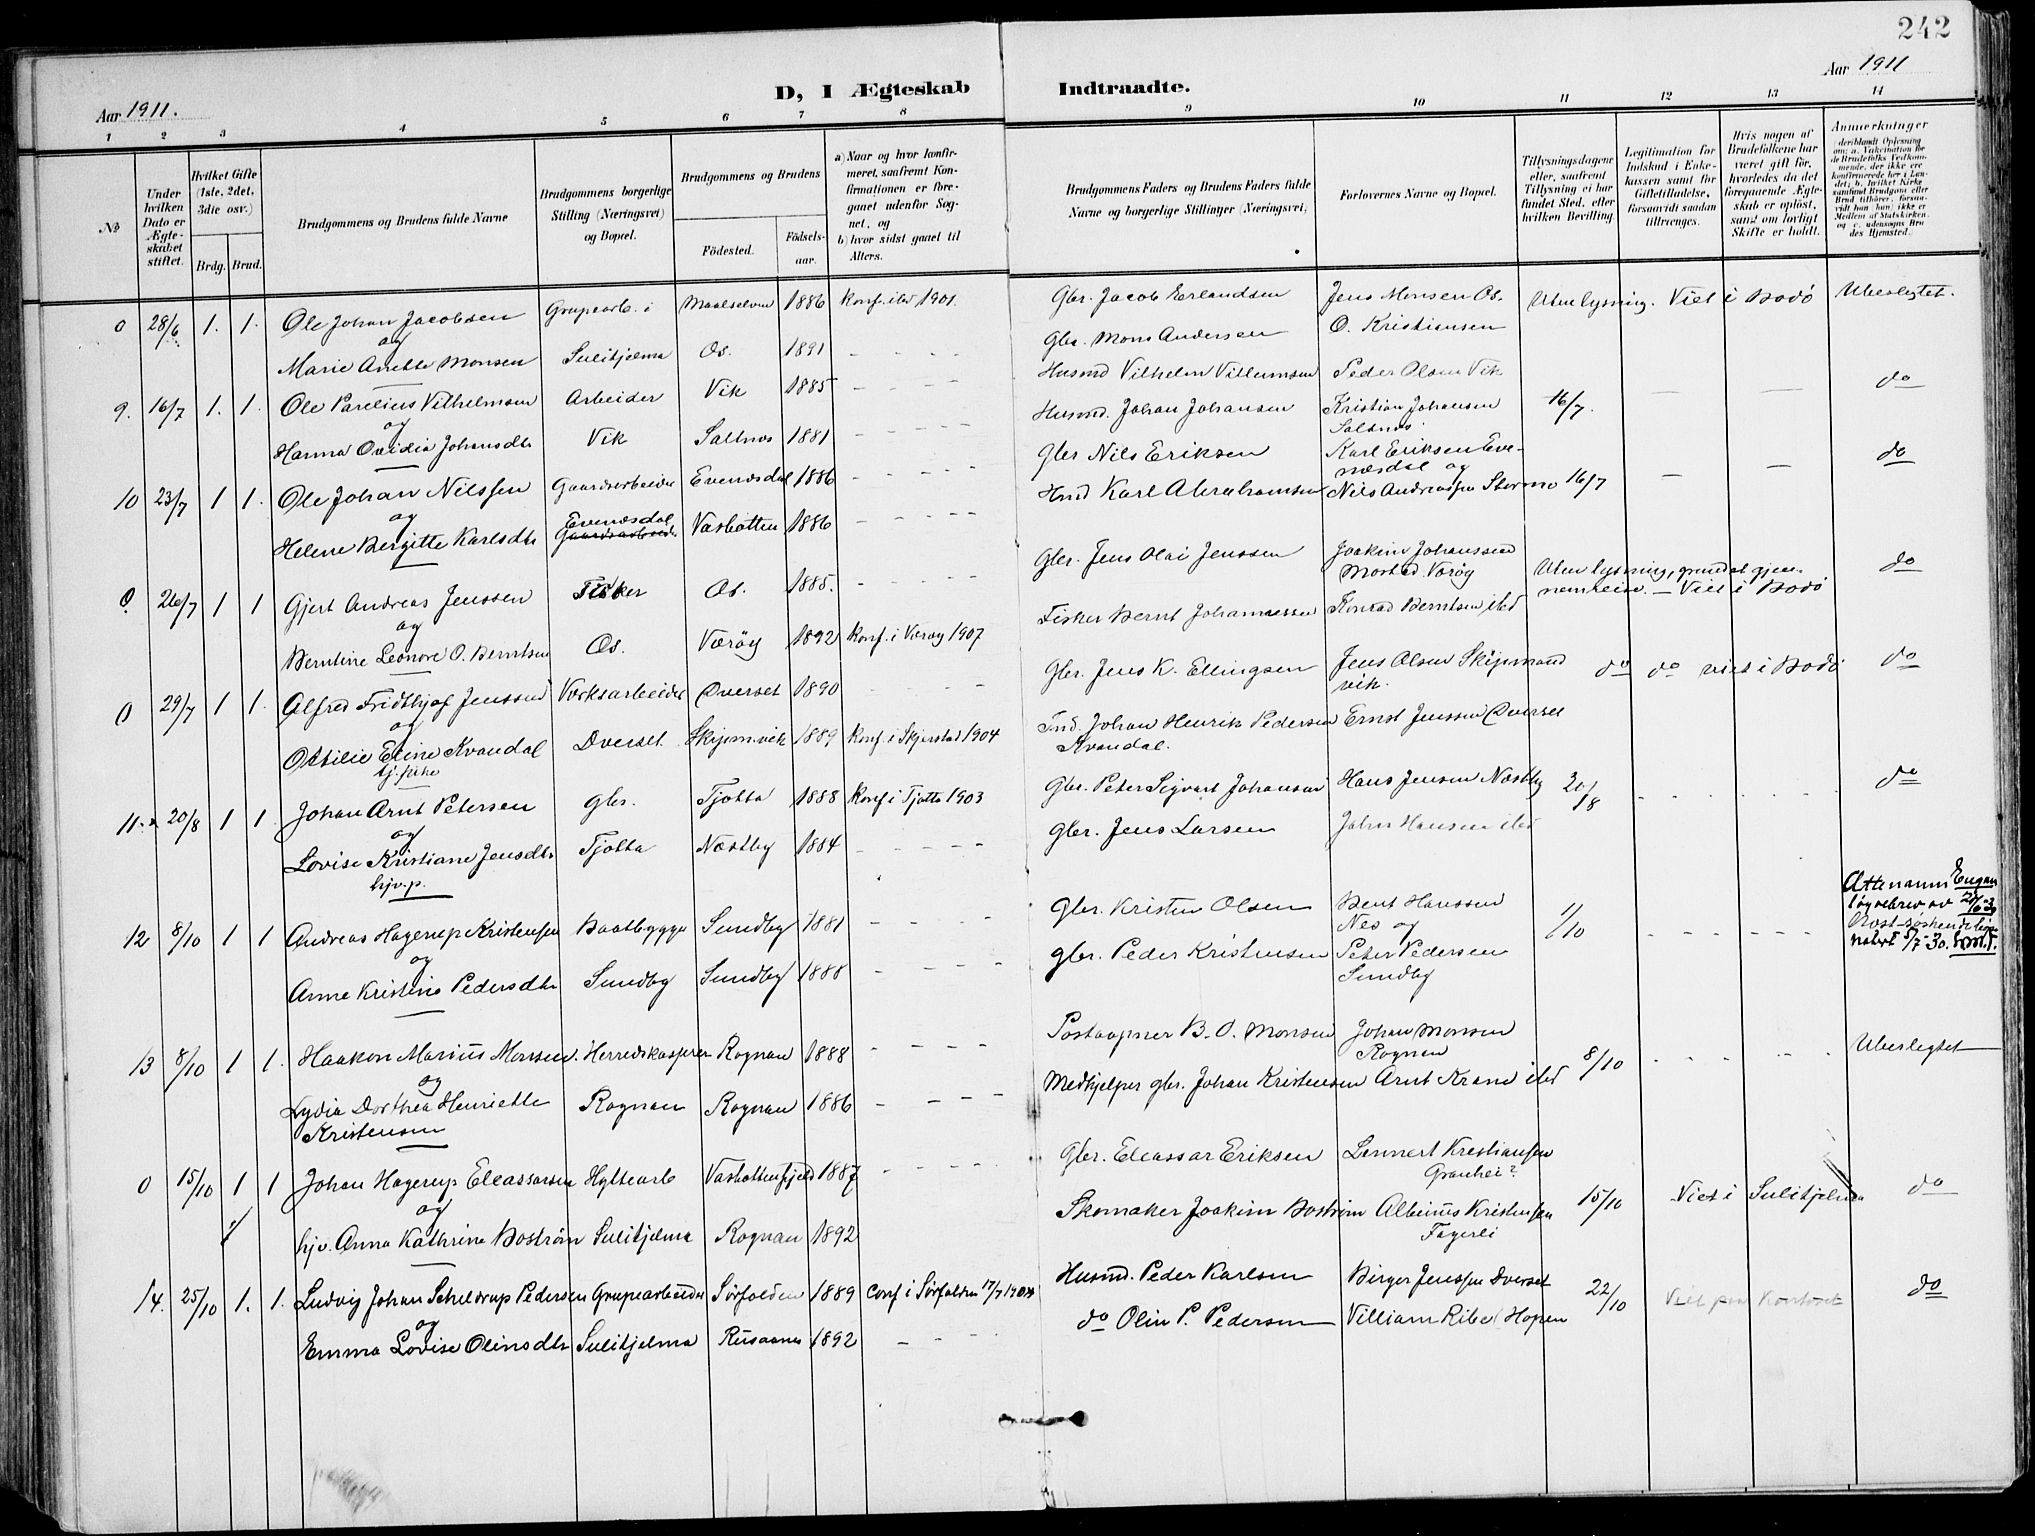 242
Aar 1911.
D, I Ægteskab Indtraadte.
Aar 1911
1 2 3 4 5 6 7 8 9 10 11 12 13 14
№
Under hvilken Dato er Ægteskabet stiftet.
Hvilket Gifte (1ste, 2det, 3die osv.)
Brdg. Brud.
Brudgommens og Brudens fulde Navne
Brudgommens borgerlige Stilling (Næringsvei) og Bopæl.
Brudgommens og Brudens
Födested.
Födselsaar.
a) Naar og hvor konfirmeret, saafremt Konfirmationen er foregaaet udenfor Sognet, og
b) hvor sidst gaaet til Alters.
Brudgommens Faders og Brudens Faders fulde Navne og borgerlige Stillinger (Næringsvei)
Forlovernes Navne og Bopæl.
Tillysningsdagene eller, saafremt Tillysning ei har fundet Sted, efter hvilken Bevilling.
Legitimation for Indskud i Enkekassen samt for Giftetilladelse, forsaavidt saadan tiltrænges.
Hvis nogen af Brudefolkene har været gift för, hvorledes da det foregaaende Ægteskab er oplöst, samt om lovligt Skifte er holdt.
Anmerkninger
0 28/6 1. 1. Ole Johan Jacobsen Grupearb. i Maalselven 1886 Konf. ibd 1901. Gbr. Jacob Erlandsen Jens Monsen Os. Uten lysning. Viet i Bodö Ubeslegtet.
og
Marie Anette Monsen Sulitjelma Os. 1891 - - - - Gbr. Mons Andersen O. Kristiansen
9. 16/7 1. 1. Ole Parelius Vilhelmsen Arbeider Vik 1885 - - - - Husmd Vilhelm Villumsen Peder Olsen Vik 16/7. — — do
og
Hanna Ovidia Johansdtr Vik Saltnes 1881 - - - - Husmd. Johan Johansen Kristian Johansen Saltnes
10 23/7 1 1. Ole Johan Nilssen Gaardsarbeider Evenesdal 1886 - - - - Gbr Nils Eriksen Karl Eriksen Evenesdal og 16/7 — — do
og
Helene Bergitte Karlsdtr Evenesdal Vasbotten 1886 - - - - Hmd Karl Abrahamsen Nils Andreassen Stormo
0. 26/7 1 1 Gjert Andreas Jenssen Fisker Os. 1885. - - - - Gbr. Jens Olai Jenssen Joakim Johanssen Mostad Værøy Uten lysning, grundet gjennemreise. — Viet i Bodö do
og
Berntine Leonore O. Berntsen Os. Værøy 1892 Konf. i Værøy 1907 Fisker Bernt Johannessen Konrad Berntsen ibd
0 29/7 1 1. Alfred Fridthjof Jenssen Verksarbeider Dverset 1890 - - - - Gbr. Jens K. Ellingsen Jens Olsen Skjevik. do do viet i Bodö do
og
Ottilie Eline Kvandal Dverset. 1889 Konf. i Skjerstad 1904 Ind. Johan Henrik Pedersen Kvandal. Ernst Jenssen Dverset
tj. pike
11. 20/8 1 1. Johan Arnt Petersen Gbr. Tjøtta 1888 Konf i Tjøtta 1903 Gbr. Peter Sigvart Johansen Hans Jensen Næstby 20/8 - - - - do
og
Lovise Kristiane Jensdtr Tjøtta Næstby 1884 - - - - Gbr. Jens Larsen Johan Hansen ibd
hjv. p.
12 8/10 1 1 Andreas Hagerup Kristensen Baatbygger Sundby 1881 - - - - Gbr. Kristen Olsen Bent Hanssen Nes og 1/10 - - - - 5/7-30.
og
Anne Kristine Pedersdtr Sundby Sundby 1888 - - - - Gbr. Peder Kristensen Peter Pedersen Sundby
13 8/10 1 1. Haakon Marius Monsen. Herredskasserer Rognan 1888 - - - - Postaapner B. O. Monsen Johan Monsen Rognan 8/10 - - - - Ubeslegtet
og
Lydia Dorthea Henriette Kristensen Rognan Rognan 1886 - - - - Medhjelper gbr. Johan Kristensen Arnt Krane ibd
0 15/10 1 1 Johan Hagerup Eleassarsen Hyttearb Vasbottenfjeld 1887 - - - - Gbr. Eleassar Eriksen Lennert Kristiansen Granhei? 15/10 Viet i Sulitjelma do
og
hjv. Anna Kathrine Boström Sulitjelma Rognan 1892 Skomaker Joakim Boström Albinus Kristensen Fagerli
14. 25/10 1. 1. Ludvig Johan Scheldrup Pedersen Grupearbeider Sørfolden 1889 Conf i Sørfolden 17/7 1904 Husmd. Peder Karlsen Birger Jenssen Dverset 22/10 Viet paa Kontoret do
og
Emma Lovise Olinsdtr Sulitjelma Rusaanes 1892 - - do Olin P. Pedersen Villiam Ribe Hopen